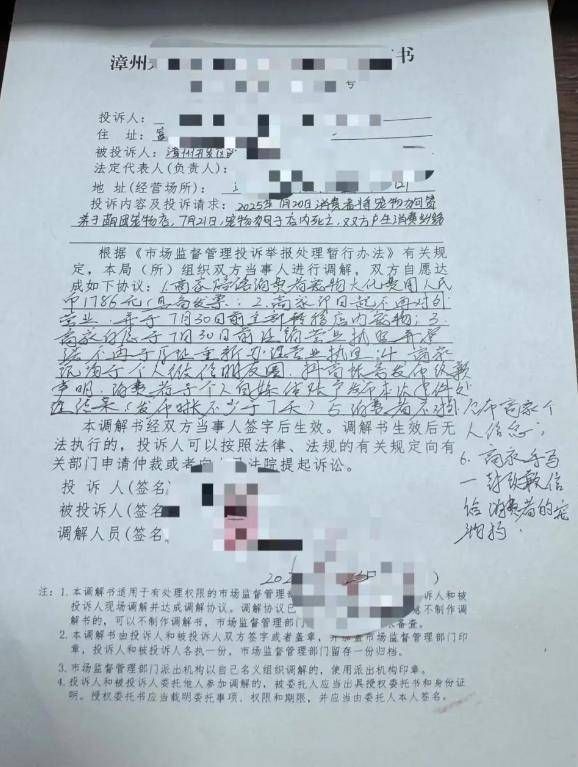 漳州 书
号
投诉人：
住 址：
被投诉人：漳州
法定代表人(负责人)：
地 址(经营场所)：
投诉内容及投诉请求：2025年7月20日消费者将宠物狗寄
养于萌团宠物店，7月21日，宠物狗于店内死亡，双方产生消费纠纷
根据《市场监督管理投诉举报处理暂行办法》有关规
定，本局（所）组织双方当事人进行调解，双方自愿达
成如下协议：1.商家赔偿消费者宠物火化费用人民
币1786元（见高发票）；2.商家即日起不再对外
营业，并于7月30日前全部转移店内宠物；3.
商家自愿于7月30日前注销营业执照并承
诺不再于原址重新办理营业执照；4.商家
需于个人微信朋友圈、抖音账号发布致歉
声明，消费者于个人自媒体账号发布本次事件处
理结果（发布时长不少于7天）5.消费者不得
公布商家个
人信息；
6.商家手写
一封致歉信
给消费者的宠
物狗。
本调解书经双方当事人签字后生效。调解书生效后无
法执行的，投诉人可以按照法律、法规的有关规定向有
关部门申请仲裁或者向人民法院提起诉讼。
投 诉 人(签名
被投诉人(签名
调解人员(签名
202
注：1.本调解书适用于有处理权限的市场监督管理 诉人和被
投诉人现场调解并达成调解协议。调解协议已 不制作调
解书的，可以不制作调解书，市场监督管理部门 备查。
2.本调解书由投诉人和被投诉人双方签字或者盖章，并加盖市场监督管理部门印
章，投诉人和被投诉人各执一份，市场监督管理部门留存一份归档。
3.市场监督管理部门派出机构以自己名义组织调解的，使用派出机构印章。
4.投诉人和被投诉人委托他人参加调解的，被委托人应当出具授权委托书和身份证
明。授权委托书应当载明委托事项、权限和期限，并应当由委托人本人签名。